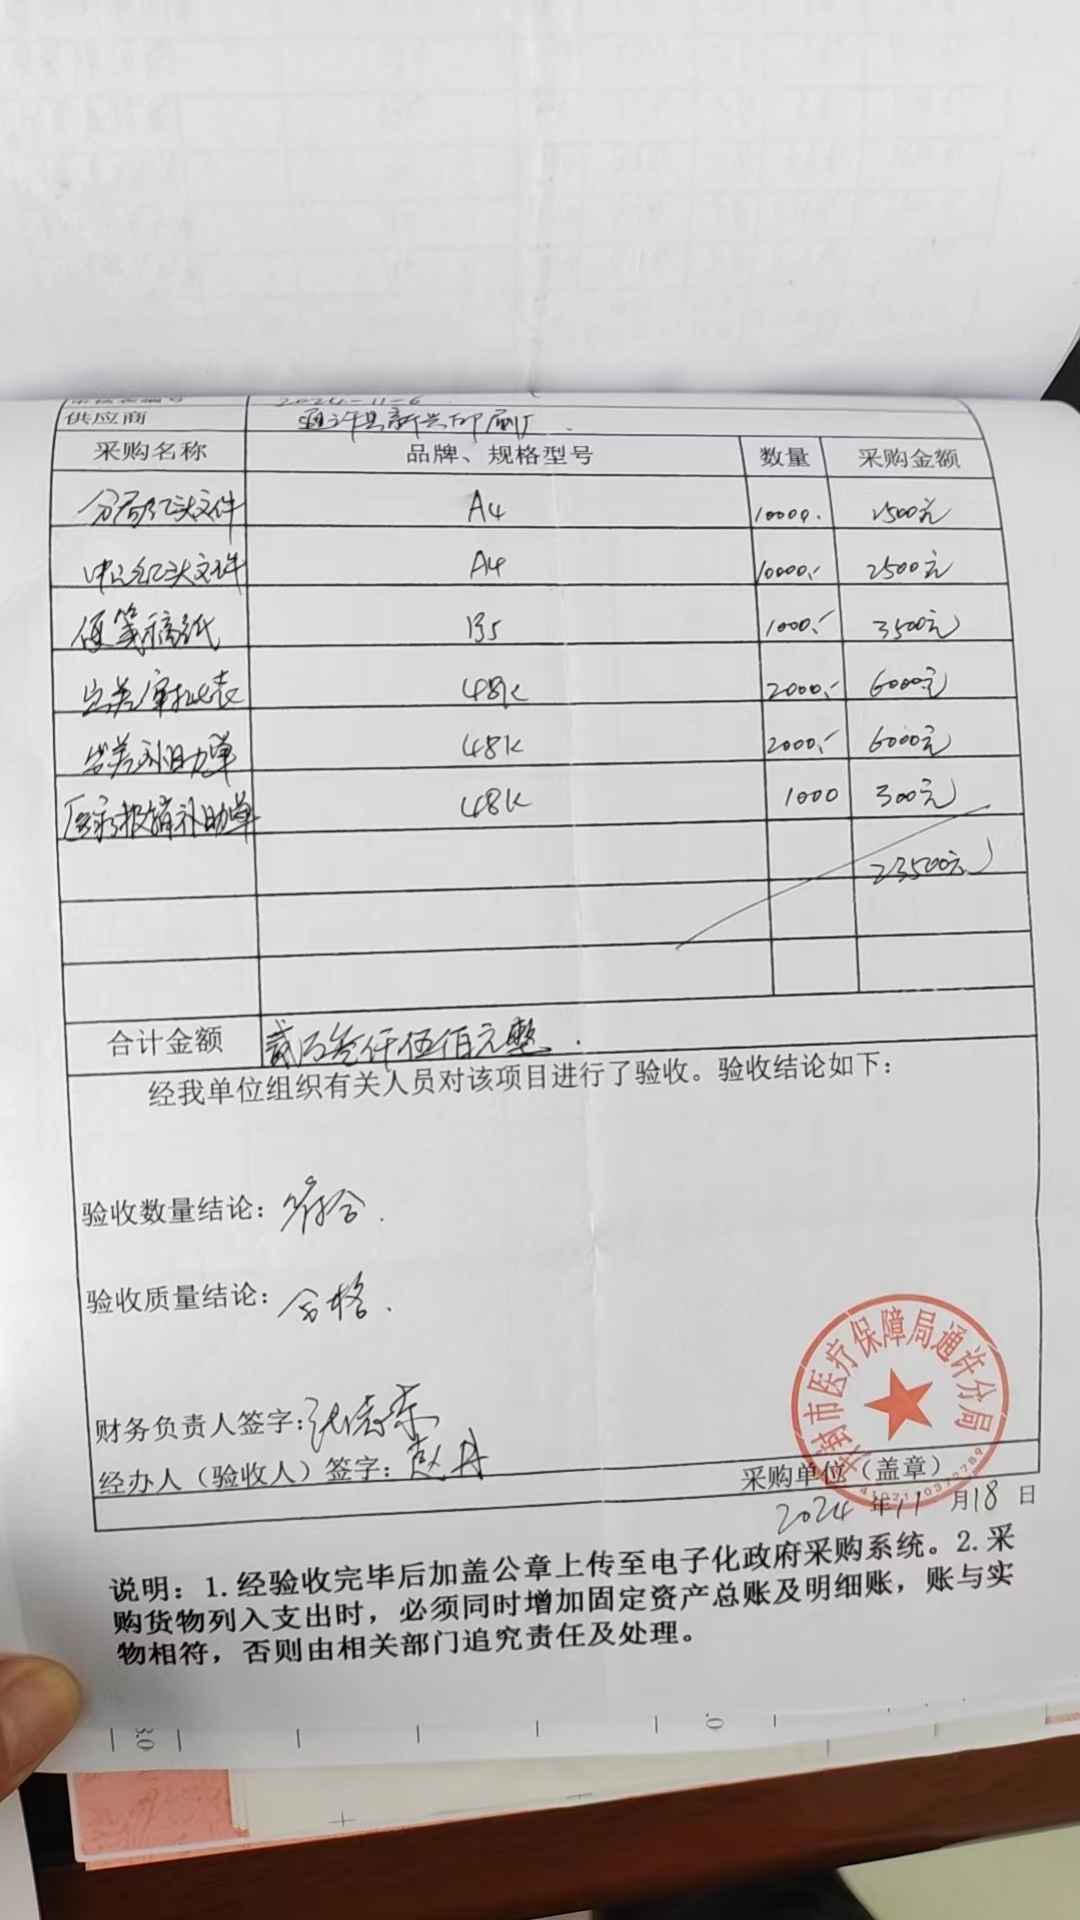 2024-11-6
供应商 通许县新兴印刷厂.
采购名称 品牌、规格型号 数量 采购金额
分局红头文件 A4 10000. 2500元
中心红头文件 A4 10000.- 2500元
便笺稿纸 B5 1000.- 3500元
出差审批表 48K 2000.- 6000元
出差补助单 48K 2000.- 6000元
医疗报销补助单 48K 1000 300元
23500元
合计金额 贰万叁仟伍佰元整.
经我单位组织有关人员对该项目进行了验收。验收结论如下：
验收数量结论：符合.
验收质量结论：合格.
财务负责人签字：
经办人（验收人）签字：赵丹
采购单位（盖章）
开封市医疗保障局通许分局
2024年11月18日
说明：1.经验收完毕后加盖公章上传至电子化政府采购系统。2.采
购货物列入支出时，必须同时增加固定资产总账及明细账，账与实
物相符，否则由相关部门追究责任及处理。